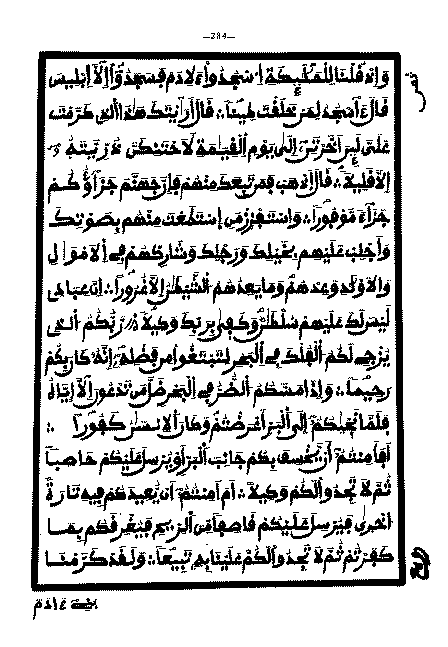 —284—
نصف
وَإِذْ قُلْنَا لِلْمَلَٰٓئِكَةِ اِ۟سْجُدُواْ لِأَدَمَ فَسَجَدُوٓاْ إِلَّآ إِبْلِيسَ
قَالَ ءَآسْجُدُ لِمَنْ خَلَقْتَ طِيناٗ ∴ قَالَ أَرَٰٓيْتَكَ هَٰذَا اَ۬لذِے كَرَّمْتَ
عَلَىَّ لَئِنَ اَخَّرْتَنِۦٓ إِلَىٰ يَوْمِ اِ۬لْقِيَٰمَةِ لَأَحْتَنِكَنَّ ذُرِّيَّتَهُۥٓ
إِلَّا قَلِيلاٗ ∴ قَالَ اَ۪ذْهَبْ فَمَن تَبِعَكَ مِنْهُمْ فَإِنَّ جَهَنَّمَ جَزَآؤُكُمْ
جَزَآءٗ مَّوْفُوراٗ ∴ وَاسْتَفْزِزْ مَنِ اِ۪سْتَطَعْتَ مِنْهُم بِصَوْتِكَ
وَأَجْلِبْ عَلَيْهِم بِخَيْلِكَ وَرَجْلِكَ وَشَارِكْهُمْ فِے اِ۬لَامْوَٰلِ
وَالَاوْلَٰدِ وَعِدْهُمْ وَمَا يَعِدُهُمُ اُ۬لشَّيْطَٰنُ إِلَّا غُرُوراٗ ∴ إِنَّ عِبَادِے
لَيْسَ لَكَ عَلَيْهِمْ سُلْطَٰنٞ وَكَفَىٰ بِرَبِّكَ وَكِيلاٗ ∴ رَّبُّكُمُ اُ۬لذِے
يُزْجِے لَكُمُ اُ۬لْفُلْكَ فِے اِ۬لْبَحْرِ لِتَبْتَغُواْ مِن فَضْلِهِۦٓ إِنَّهُۥ كَانَ بِكُمْ
رَحِيماٗ ∴ وَإِذَا مَسَّكُمُ اُ۬لضُّرُّ فِے اِ۬لْبَحْرِ ضَلَّ مَن تَدْعُونَ إِلَّآ إِيَّاهُ
فَلَمَّا نَجَّيٰكُمُۥٓ إِلَى اَ۬لْبَرِّ أَعْرَضْتُمْ وَكَانَ اَ۬لِانسَٰنُ كَفُوراٗ ∴
اَفَأَمِنتُمُۥٓ أَنْ يَّخْسِفَ بِكُمْ جَانِبَ اَ۬لْبَرِّ أَوْ يُرْسِلَ عَلَيْكُمْ حَاصِباٗ
ثُمَّ لَا تَجِدُواْ لَكُمْ وَكِيلاٗ ∴ اَمَ اَمِنتُمُۥٓ أَنْ يُّعِيدَكُمْ فِيهِ تَارَةً
اُخْرَىٰ فَيُرْسِلَ عَلَيْكُمْ قَاصِفاٗ مِّنَ اَ۬لرِّيحِ فَيُغْرِقَكُم بِمَا
كَفَرْتُمْ ثُمَّ لَا تَجِدُواْ لَكُمْ عَلَيْنَا بِهِۦ تَبِيعاٗ ∴ وَلَقَدْ كَرَّمْنَا
بَنِےٓ ءَادَمَ